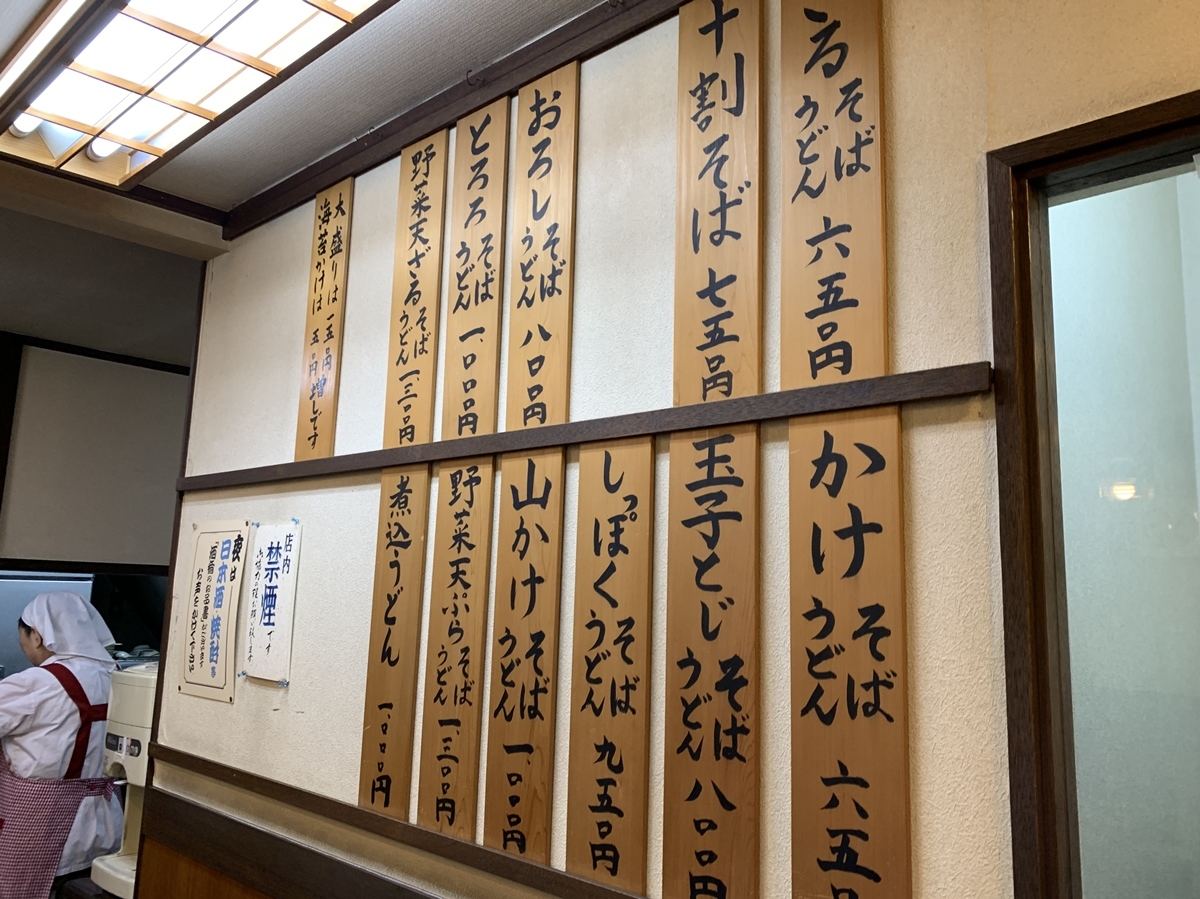 る そば うどん 六五〇円
十割そば 七五〇円
おろし そば うどん 八〇〇円
とろろ そば うどん 一、〇〇〇円
野菜天ざる そば うどん 一三〇〇円
大盛りは 一五〇円増
海苔かけは 五〇円増しです
かけ そば うどん 六五〇
玉子とじ そば うどん 八〇〇円
しっぽく そば うどん 九五〇円
山かけ そば うどん 一、〇〇〇円
野菜天ぷら そば うどん 一、三〇〇円
煮込うどん 一、〇〇〇円
店内
禁煙です
御協力の程お願い致します
夜は
日本酒・焼酎等
「酒肴のお品書」がございます
お声をかけてください